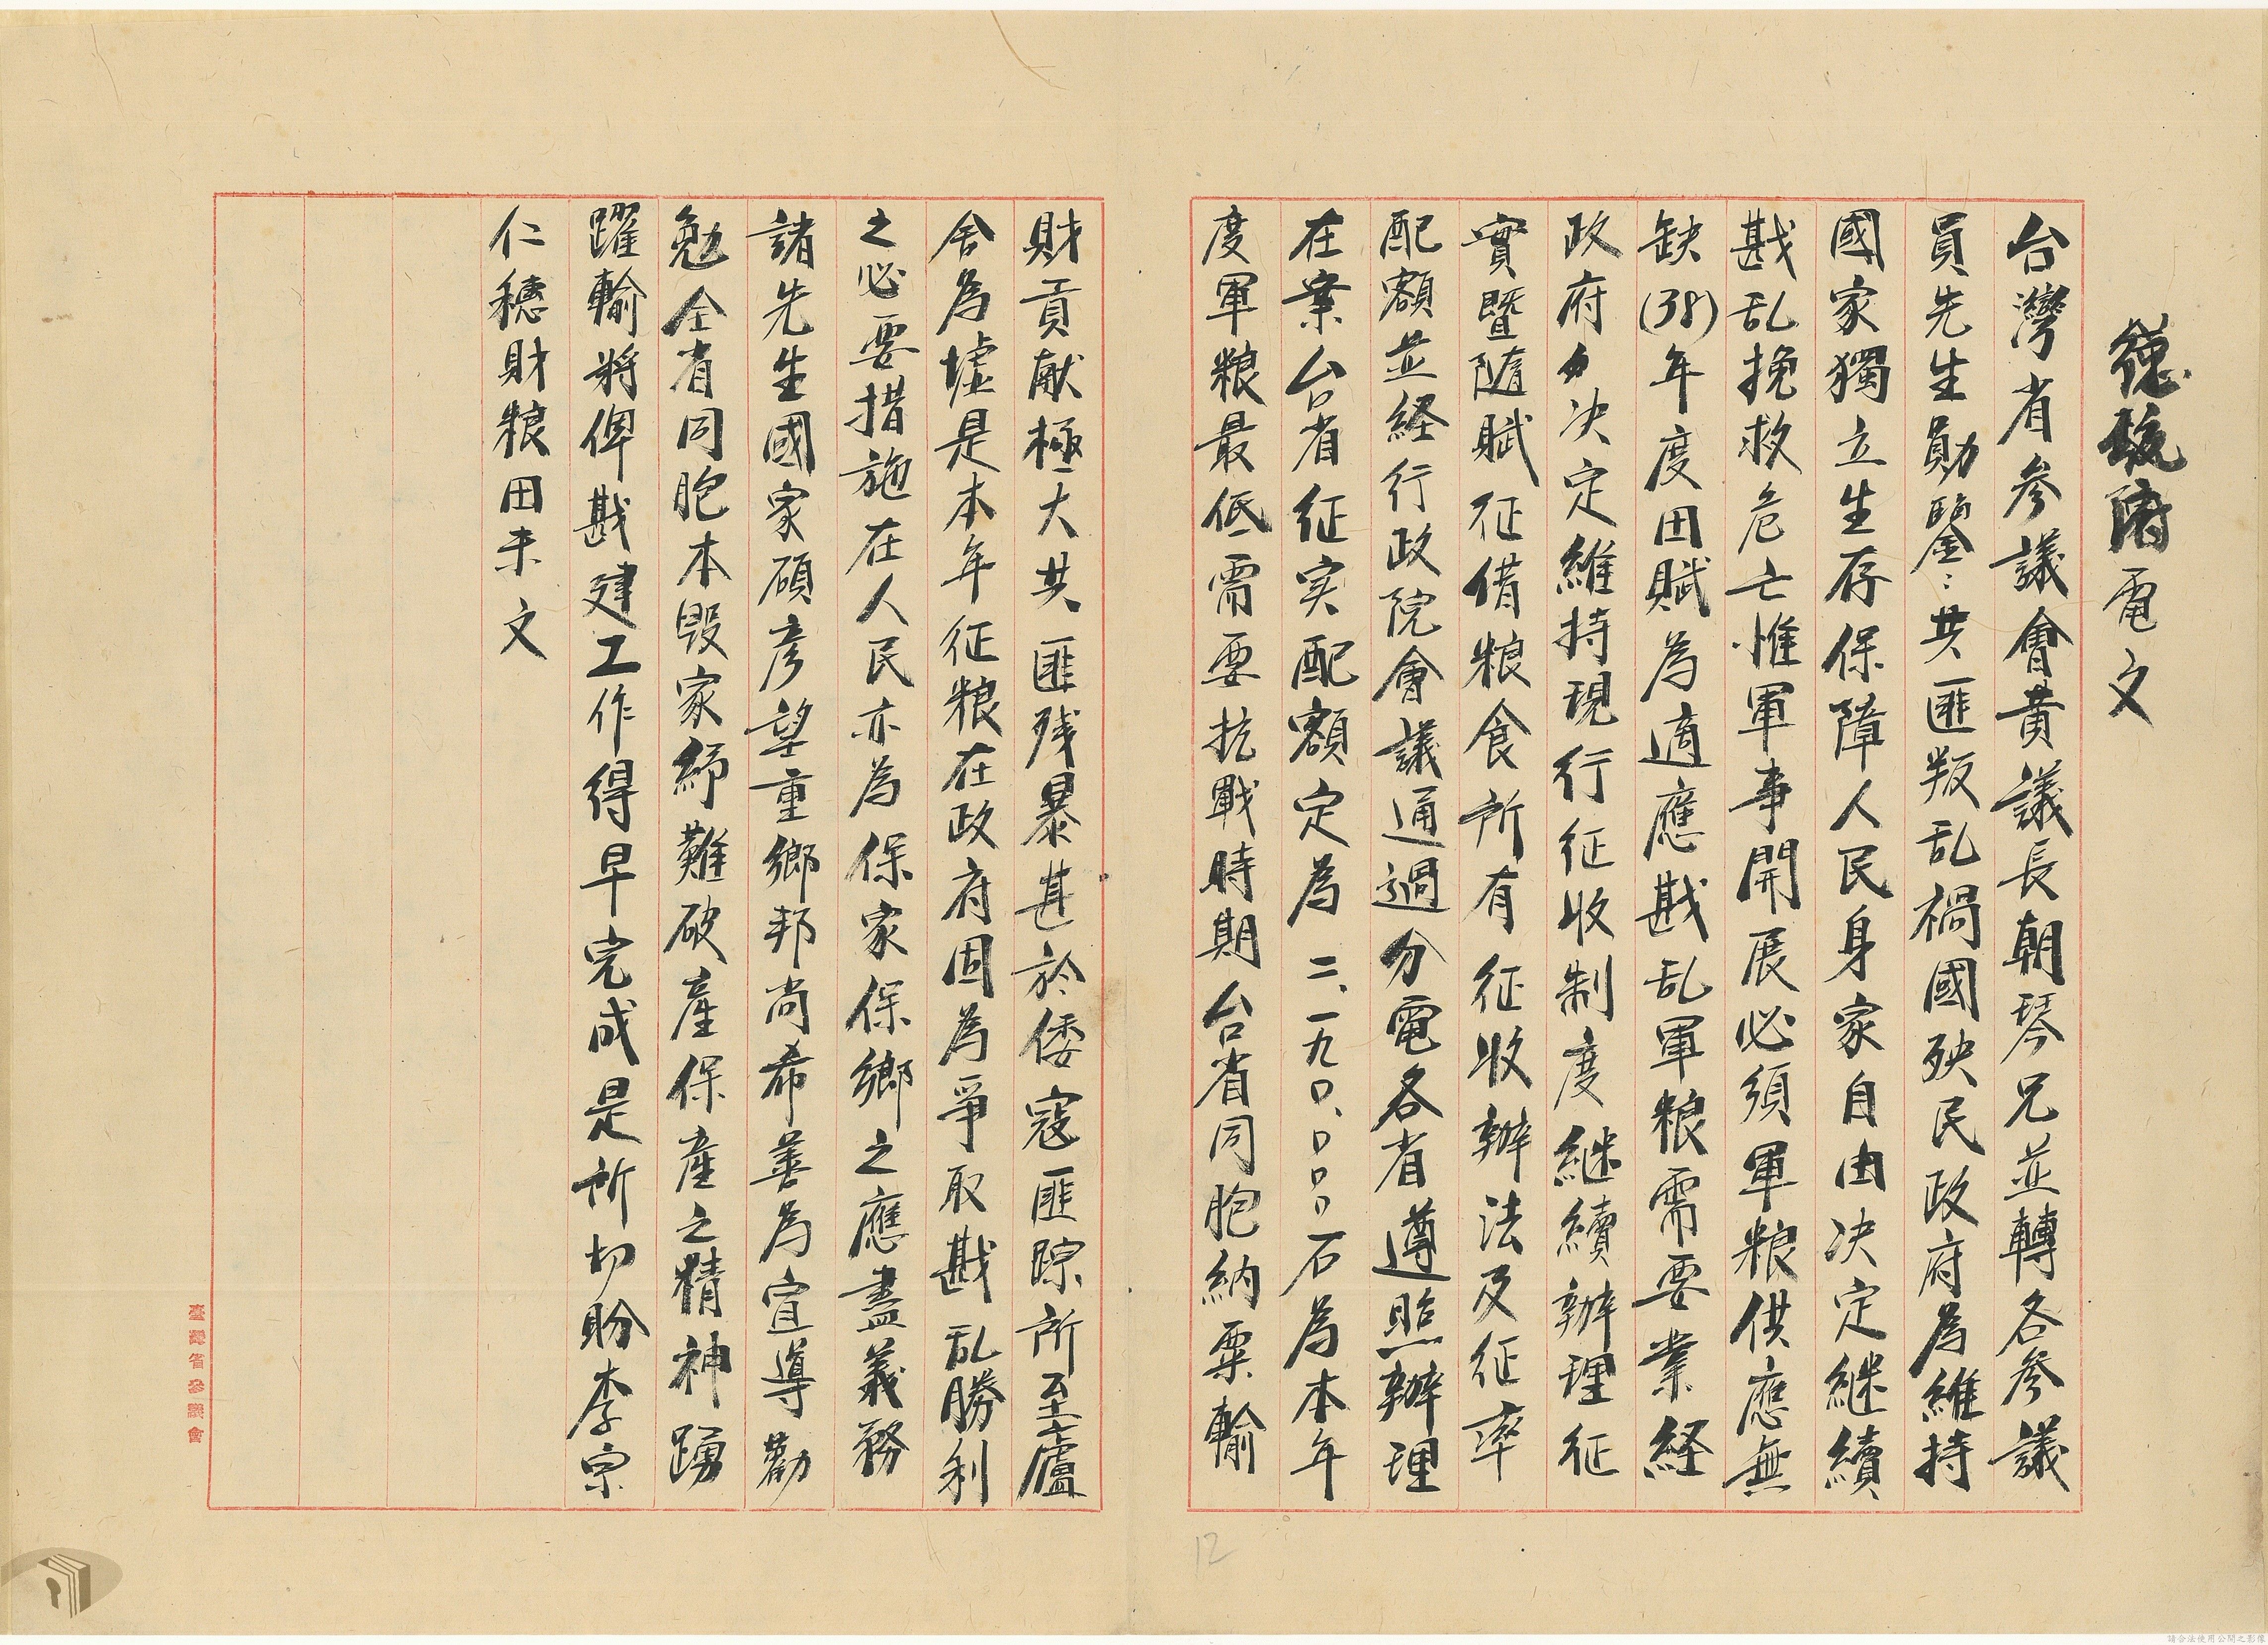 總統府電文
台灣省參議會黃議長朝琴兄並轉各參議
員先生勛鑒：共匪叛乱禍國殃民政府為維持
國家獨立生存保障人民身家自由决定継續
戡乱挽救危亡惟軍事開展必須軍粮供應無
缺(38)年度田賦為適應戡乱軍粮需要業経
政府力决定維持現行征收制度継續辦理征
實暨隨賦征借粮食所有征收辦法及征率
配額並経行政院會議通過分電各省遵照辦理
在案台省征实配額定為二、一九〇、〇〇〇石為本年
度軍粮最低需要抗戰時期台省同胞納粟輸
財貢献極大共匪残暴甚於倭寇匪踪所至廬
舍為墟是本年征粮在政府固為爭取戡乱勝利
之必要措施在人民亦為保家保鄉之應盡義務
諸先生國家碩彥望重鄉邦尚希善為宣導勸
勉全省同胞本毀家紓難破產保產之精神踴
躍輸將俾戡建工作得早完成是所切盼李宗
仁穗財粮田未文
臺灣省參議會
12
請合法使用公開之影像